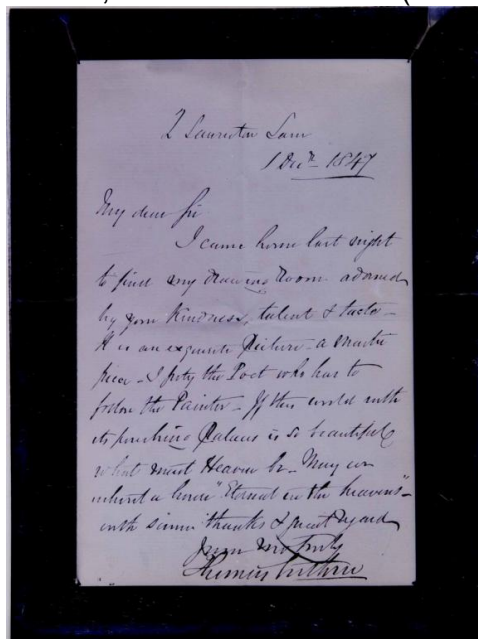 2 Lauriston Lane
1 Decr 1847
My dear Sir
I came home last night
to find my drawing Room adorned
by your kindness, talent & taste -
It is an exquisite Picture - a master
piece - I pity the Poet who has to
follow the Painter - If this world with
its perishing Palaces is so beautiful
what must Heaven be - May we
inherit a house "Eternal in the heavens" -
with sincere thanks & great regard
Yours truly
Thomas Guthrie